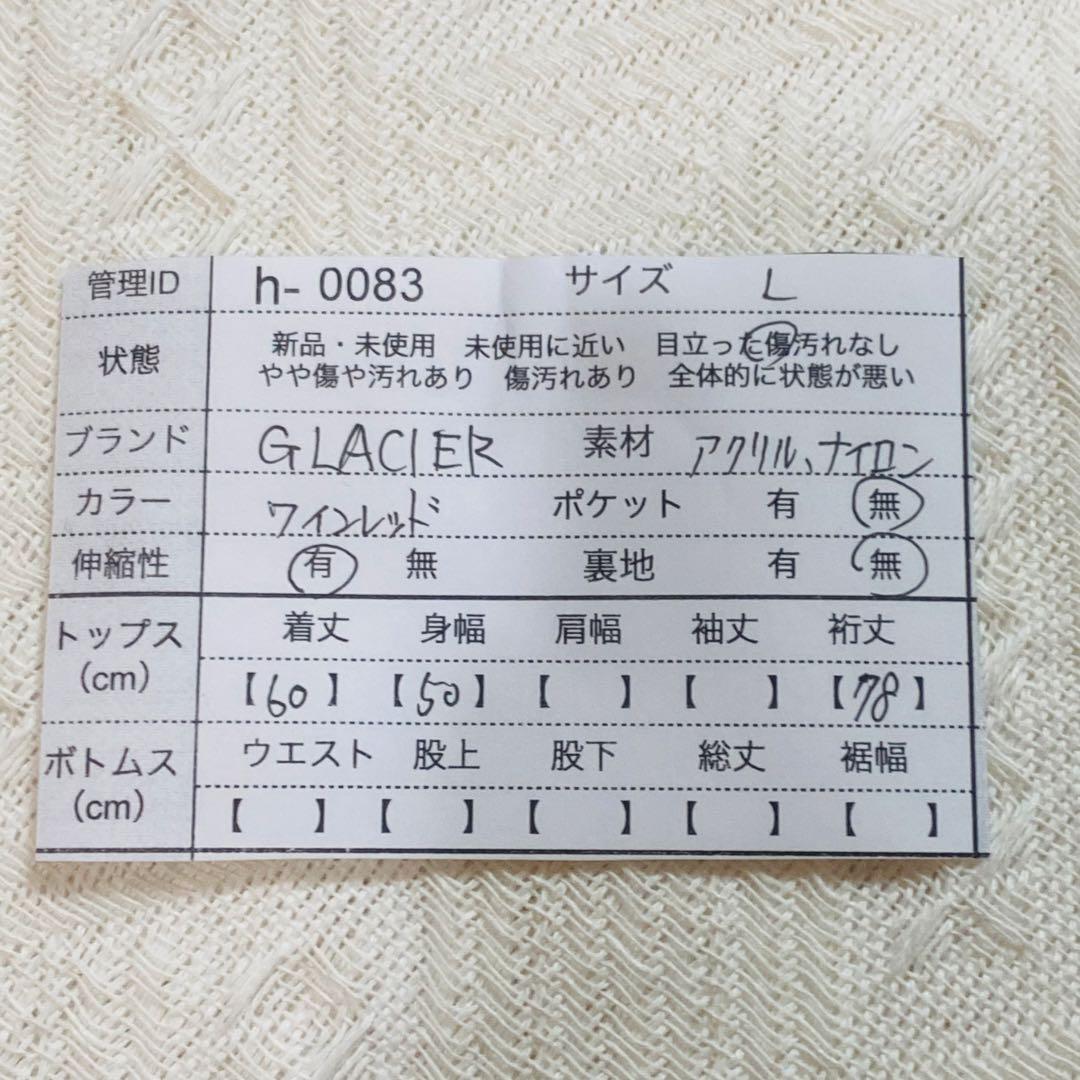 管理ID h- 0083 サイズ L
状態 新品・未使用 未使用に近い 目立った傷汚れなし
やや傷や汚れあり 傷汚れあり 全体的に状態が悪い
ブランド GLACIER 素材 アクリル、ナイロン
カラー ワインレッド ポケット 有 無
伸縮性 有 無 裏地 有 無
トップス 着丈 身幅 肩幅 袖丈 裄丈
(cm) 【60】 【50】 【 】 【 】 【78】
ボトムス ウエスト 股上 股下 総丈 裾幅
(cm) 【 】 【 】 【 】 【 】 【 】